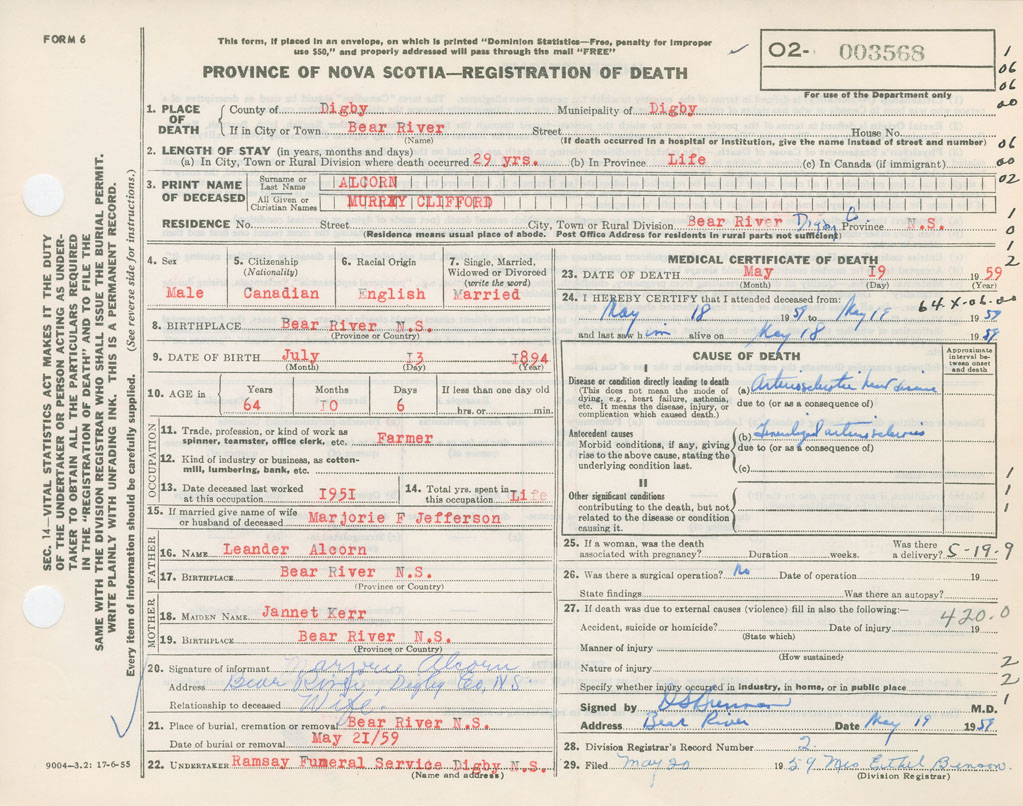 FORM 6
This form, if placed in an envelope, on which is printed "Dominion Statistics—Free, penalty for improper
use $50," and properly addressed will pass through the mail "FREE"
PROVINCE OF NOVA SCOTIA—REGISTRATION OF DEATH
O2- 003568
For use of the Department only
1
06
06
00
06
02
1
0
1
2
SEC. 14—VITAL STATISTICS ACT MAKES IT THE DUTY
OF THE UNDERTAKER OR PERSON ACTING AS UNDER-
TAKER TO OBTAIN ALL THE PARTICULARS REQUIRED
IN THE "REGISTRATION OF DEATH" AND TO FILE THE
SAME WITH THE DIVISION REGISTRAR WHO SHALL ISSUE THE BURIAL PERMIT.
WRITE PLAINLY WITH UNFADING INK. THIS IS A PERMANENT RECORD.
Every item of information should be carefully supplied. (See reverse side for instructions.)
1. PLACE OF DEATH County of Digby Municipality of Digby
If in City or Town Bear River Street House No.
(Name) (If death occurred in a hospital or institution, give the name instead of street and number)
2. LENGTH OF STAY (in years, months and days)
(a) In City, Town or Rural Division where death occurred 29 yrs. (b) In Province Life (c) In Canada (if immigrant)
3. PRINT NAME OF DECEASED Surname or Last Name ALCORN
All Given or Christian Names MURREY CLIFFORD
RESIDENCE No. Street City, Town or Rural Division Bear River Digby Co Province N.S.
(Residence means usual place of abode. Post Office Address for residents in rural parts not sufficient)
4. Sex Male
5. Citizenship (Nationality) Canadian
6. Racial Origin English
7. Single, Married, Widowed or Divorced (write the word) Married
8. BIRTHPLACE Bear River N.S.
(Province or Country)
9. DATE OF BIRTH July 13 1894
(Month) (Day) (Year)
10. AGE in Years 64 Months 10 Days 6 If less than one day old hrs. or min.
OCCUPATION
11. Trade, profession, or kind of work as
spinner, teamster, office clerk, etc. Farmer
12. Kind of industry or business, as cotton-
mill, lumbering, bank, etc.
13. Date deceased last worked at this occupation 1951
14. Total yrs. spent in this occupation Life
15. If married give name of wife or husband of deceased Marjorie F Jefferson
FATHER
16. NAME Leander Alcorn
17. BIRTHPLACE Bear River N.S.
(Province or Country)
MOTHER
18. MAIDEN NAME Jannet Kerr
19. BIRTHPLACE Bear River N.S.
(Province or Country)
20. Signature of informant Marjorie Alcorn
Address Bear River, Digby Co, N.S.
Relationship to deceased Wife.
21. Place of burial, cremation or removal Bear River N.S.
Date of burial or removal May 21/59
22. UNDERTAKER Ramsay Funeral Service Digby N.S.
(Name and address)
9004—3.2: 17-6-55
MEDICAL CERTIFICATE OF DEATH
23. DATE OF DEATH May 19 1959
(Month) (Day) (Year)
24. I HEREBY CERTIFY that I attended deceased from: 64-X-06-00
May 18 1959 to May 19 1959
and last saw him alive on May 18 1959
CAUSE OF DEATH
Approximate interval between onset and death
I
Disease or condition directly leading to death
(This does not mean the mode of
dying, e.g., heart failure, asthenia,
etc. It means the disease, injury, or
complication which caused death.)
(a) Arteriosclerotic heart disease
due to (or as a consequence of)
Antecedent causes
Morbid conditions, if any, giving
rise to the above cause, stating the
underlying condition last.
(b) Generalized arteriosclerosis
due to (or as a consequence of)
(c)
II
Other significant conditions
contributing to the death, but not
related to the disease or condition
causing it.
1
1
1
25. If a woman, was the death
associated with pregnancy? Duration weeks. Was there a delivery? 5-19-9
26. Was there a surgical operation? No Date of operation 19
State findings Was there an autopsy?
27. If death was due to external causes (violence) fill in also the following:— 420.0
Accident, suicide or homicide? Date of injury 19
(State which)
Manner of injury
(How sustained)
Nature of injury
Specify whether injury occurred in industry, in home, or in public place
2
2
1
Signed by M.D.
Address Bear River Date May 19 1959
28. Division Registrar's Record Number 2.
29. Filed May 20 1959 Mrs Ethel Benson.
(Division Registrar)